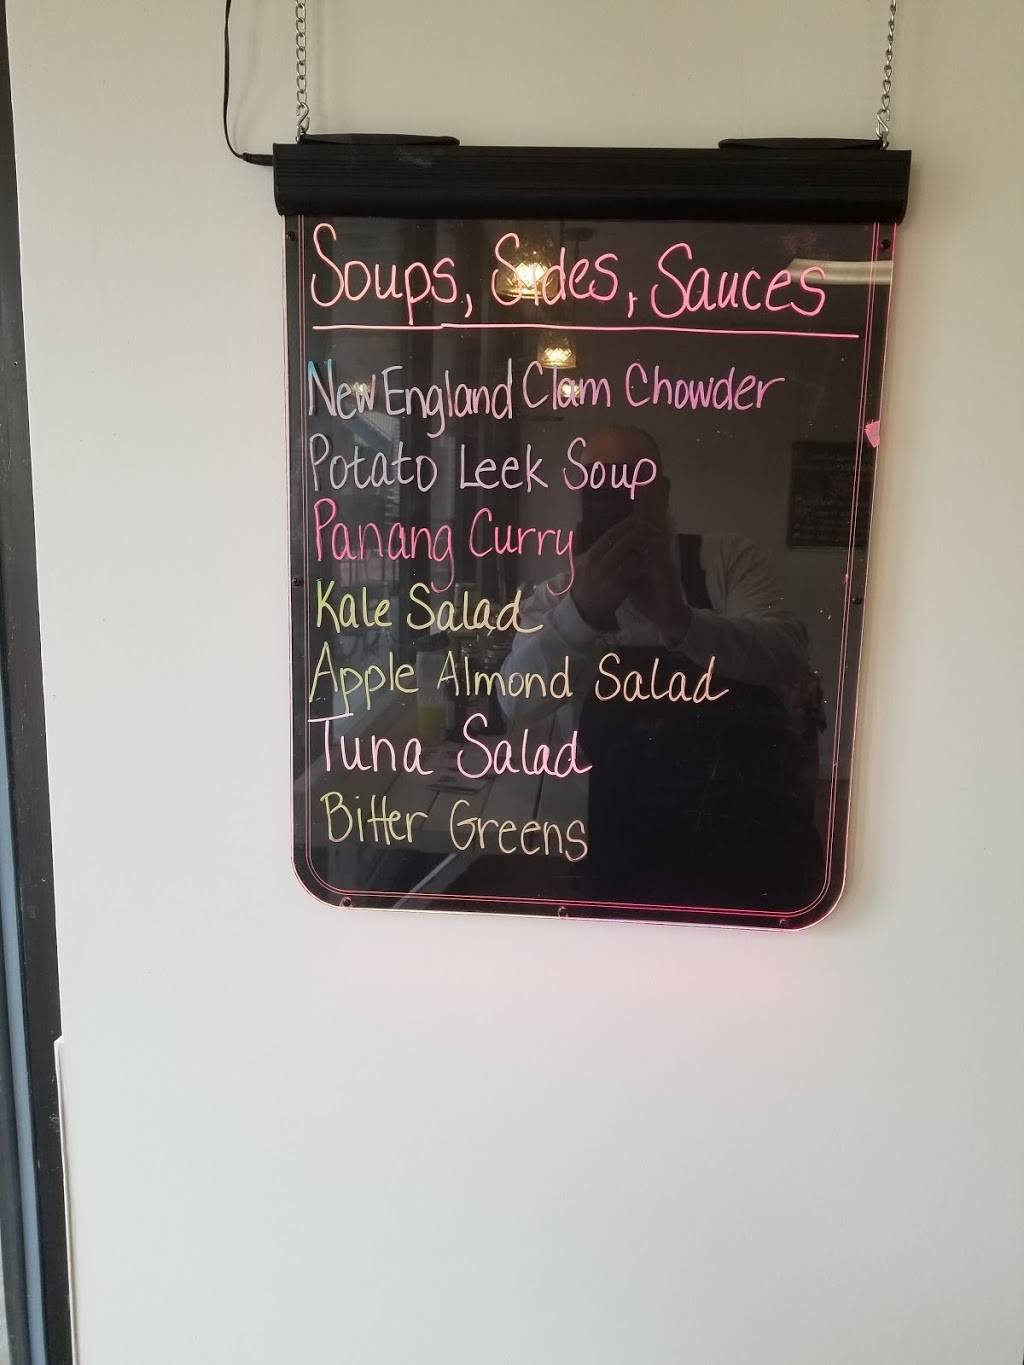 Soups, Sides, Sauces
New England Clam Chowder
Potato Leek Soup
Panang Curry
Kale Salad
Apple Almond Salad
Tuna Salad
Bitter Greens